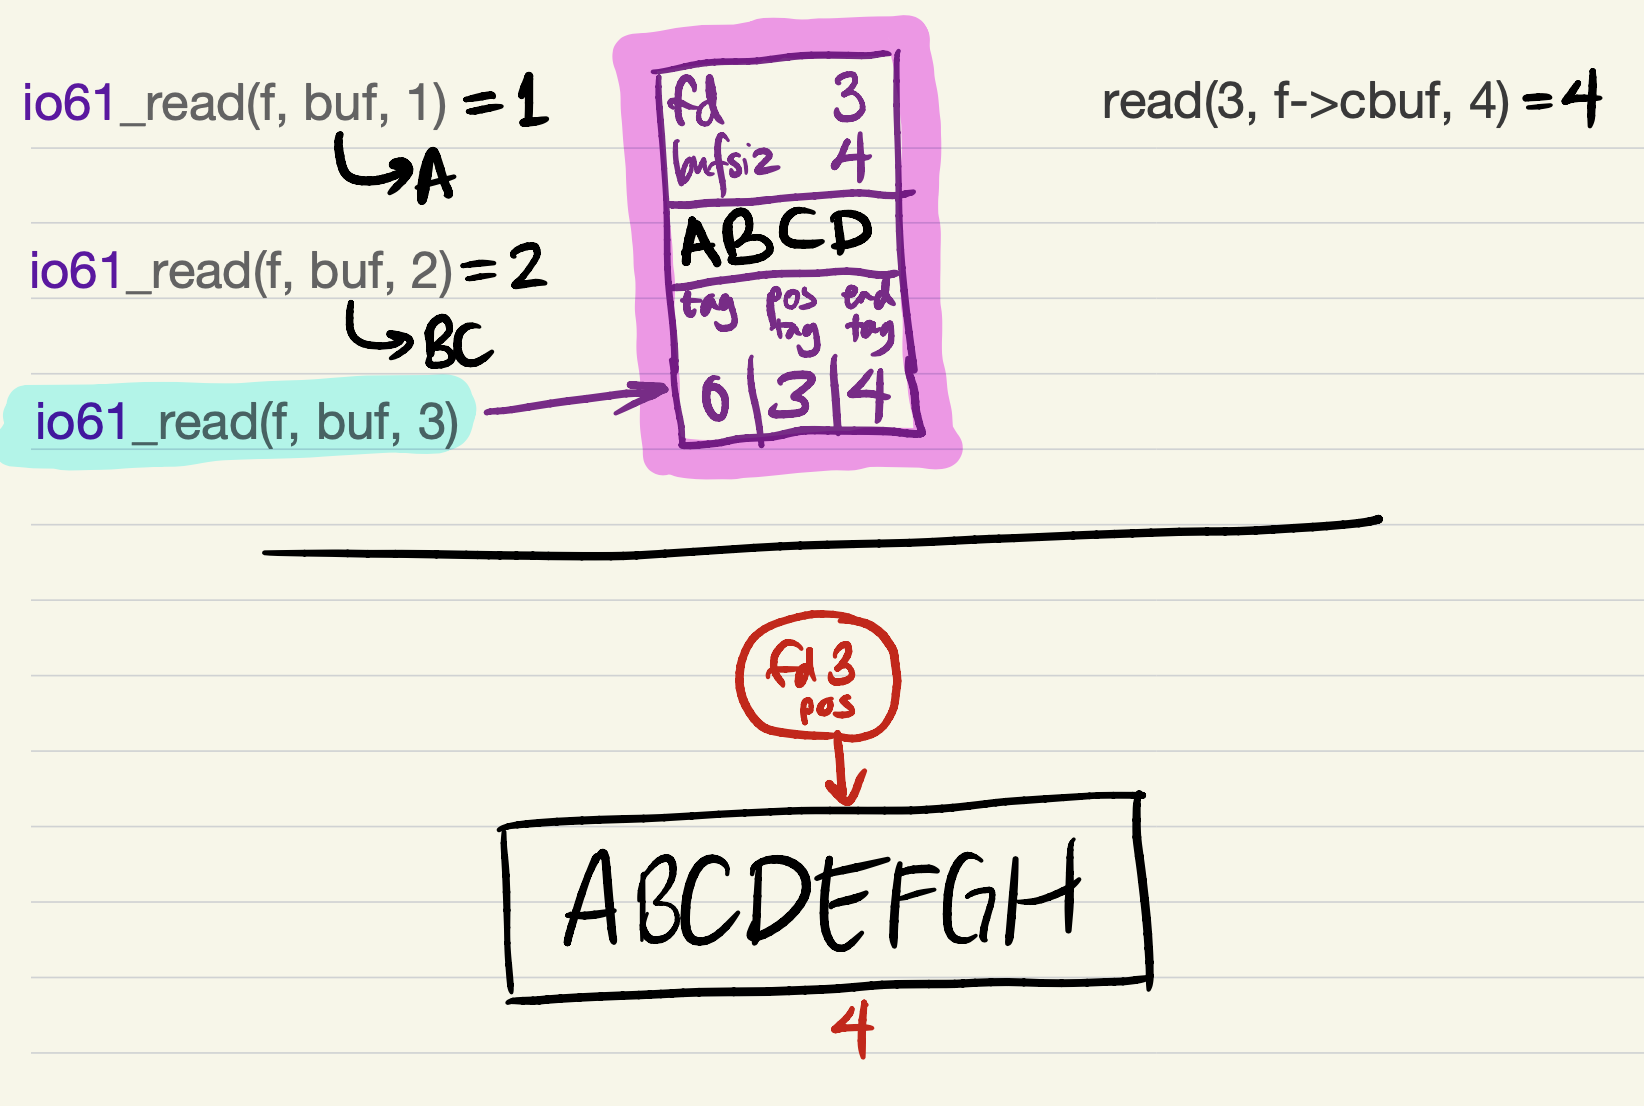 io61_read(f, buf, 1) = 1
A
io61_read(f, buf, 2) = 2
BC
io61_read(f, buf, 3)
fd 3
bufsiz 4
ABCD
tag pos tag end tag
0 3 4
read(3, f->cbuf, 4) = 4
fd 3
pos
ABCDEFGH
4